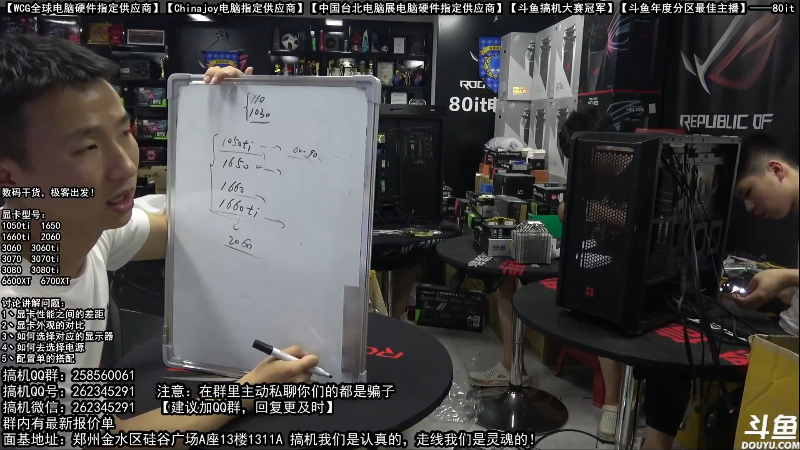 【WCG全球电脑硬件指定供应商】【Chinajoy电脑指定供应商】【中国台北电脑展电脑硬件指定供应商】【斗鱼搞机大赛冠军】【斗鱼年度分区最佳主播】——80it
110
1030
1050ti
1650
1660
1660ti
2060
80it电
REPUBLIC OF
数码干货，极客出发！
显卡型号：
1050ti 1650
1660ti 2060
3060 3060ti
3070 3070ti
3080 3080ti
6600XT 6700XT
讨论讲解问题：
1、显卡性能之间的差距
2、显卡外观的对比
3、如何选择对应的显示器
4、如何去选择电源
5、配置单的搭配
搞机QQ群：258560061
搞机QQ号：262345291 注意：在群里主动私聊你们的都是骗子
搞机微信：262345291 【建议加QQ群，回复更及时】
群内有最新报价单
面基地址：郑州金水区硅谷广场A座13楼1311A 搞机我们是认真的，走线我们是灵魂的！
斗鱼
DOUYU.COM